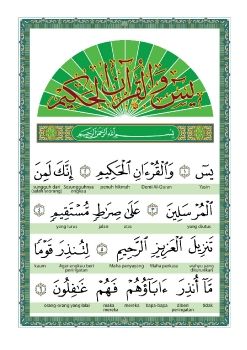 يسٓ وَالْقُرْآنِ الْحَكِيمِ
بِسْمِ اللَّهِ الرَّحْمَٰنِ الرَّحِيمِ
يسٓ ١ وَالْقُرْءَانِ الْحَكِيمِ ٢ إِنَّكَ لَمِنَ
sungguh dari Sesungguhnya penuh hikmah Demi Al-Quran Yasin
(salah seorang) engkau
الْمُرْسَلِينَ ٣ عَلَىٰ صِرَاطٍ مُّسْتَقِيمٍ ٤
yang lurus jalan atas yang diutus
تَنزِيلَ الْعَزِيزِ الرَّحِيمِ ٥ لِتُنذِرَ قَوْمًا
kaum Agar engkau beri Maha penyayang Maha perkasa wahyu yang
peringatan diturunkan
مَّا أُنذِرَ ءَابَاؤُهُمْ فَهُمْ غَافِلُونَ ٦
orang-orang yang lalai maka mereka bapa-bapa diberi tidak
mereka peringatan